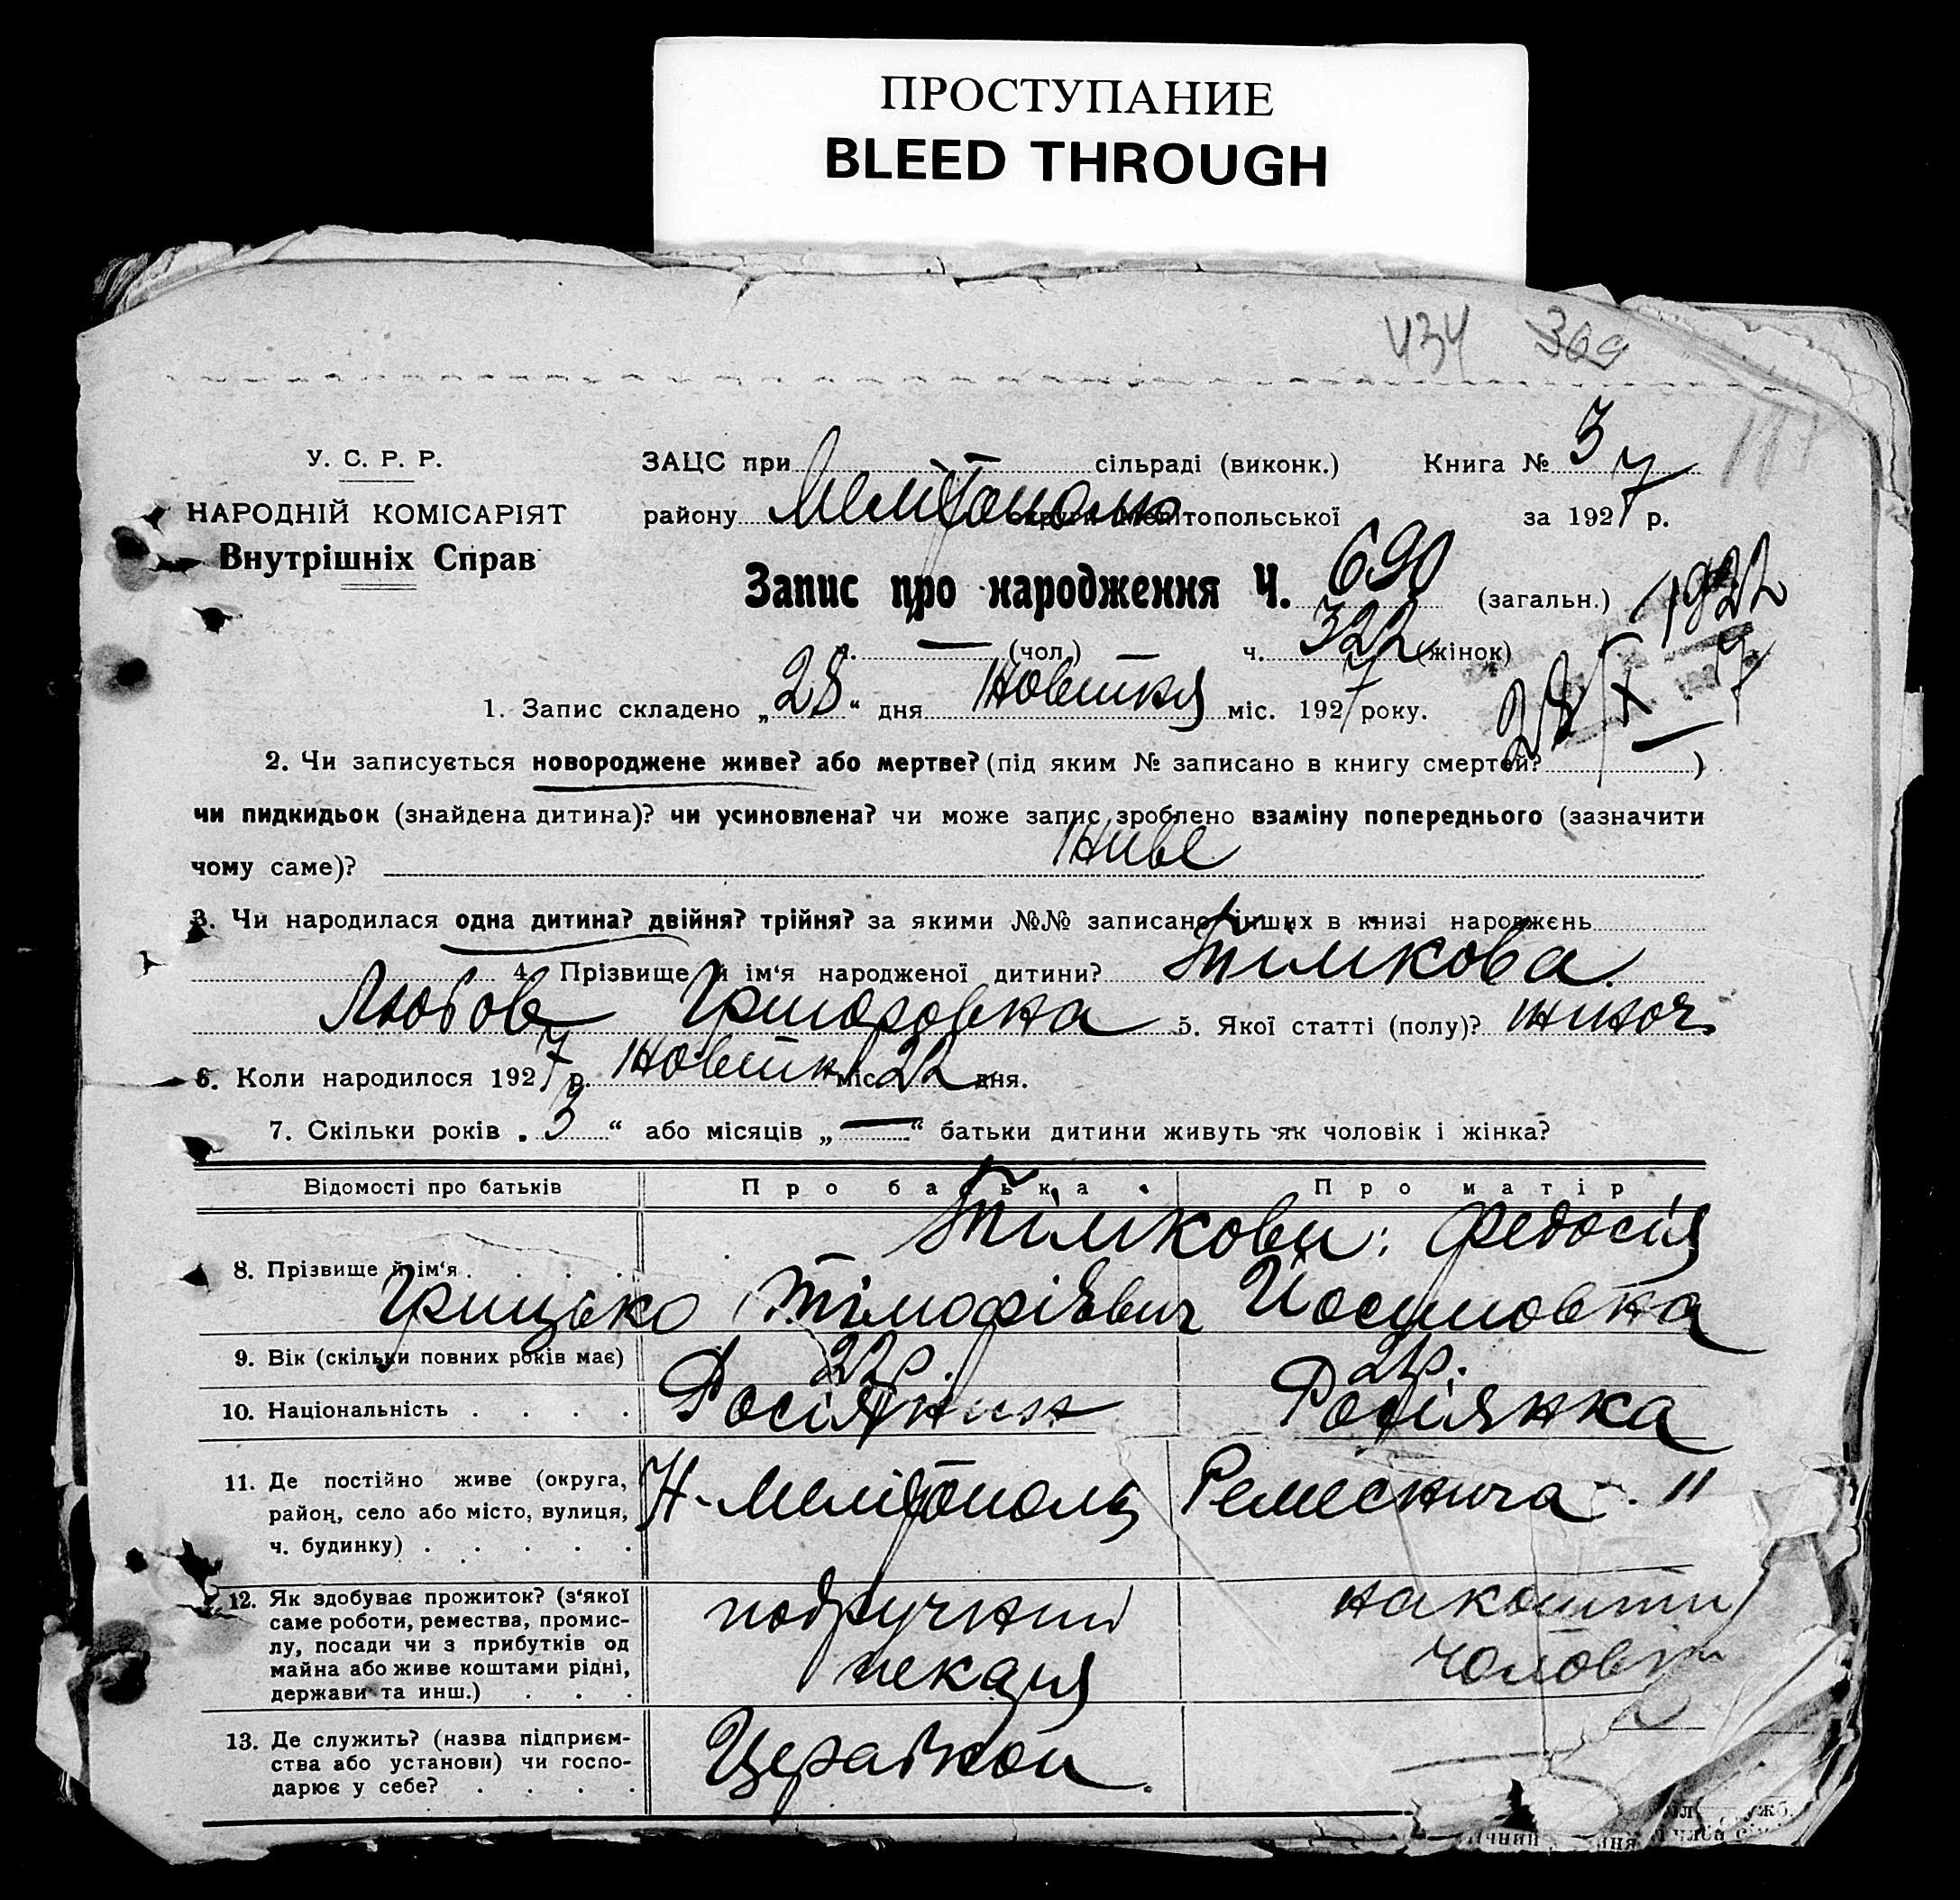 ПРОСТУПАНИЕ
BLEED THROUGH
434 309
У. С. Р. Р.
НАРОДНІЙ КОМІСАРІЯТ
Внутрішніх Справ
ЗАЦС при сільраді (виконк.) Книга № 3
району Мелітополь округи Мелітопольської за 1927 р.
Запис про народження Ч. 690 (загальн.)
ч. — (чол.) ч. 322 (жінок)
1. Запис складено „28“ дня Жовтня міс. 1927 року.
2. Чи записується новороджене живе? або мертве? (під яким № записано в книгу смертей? )
чи пидкидьок (знайдена дитина)? чи усиновлена? чи може запис зроблено взаміну попереднього (зазначити
чому саме)? Живе
3. Чи народилася одна дитина? двійня? трійня? за якими №№ записано інших в книзі народжень
4. Прізвище й ім‘я народженої дитини? Тілікова
Любов Григоровна 5. Якої статті (полу)? жіноч.
6. Коли народилося 1927 р. Жовтня міс. 22 дня.
7. Скільки років „3“ або місяців „—“ батьки дитини живуть як чоловік і жінка?
Відомості про батьків Про батька Про матір
8. Прізвище й ім‘я Тілікови: Федосія
Грицько Тімофієвич Йосиповна
9. Вік (скільки повних років має) 22 р. 21 р.
10. Національність Росіянин Росіянка
11. Де постійно живе (округа,
район, село або місто, вулиця,
ч. будинку) Н-Мелітополь "
12. Як здобуває прожиток? (з‘якої
саме роботи, ремества, промис-
лу, посади чи з прибутків од
майна або живе коштами рідні,
держави та инш.) подручний пекаря на кошти чоловіка
13. Де служить? (назва підприєм-
ства або установи) чи госпо-
дарює у себе? Церабкоп